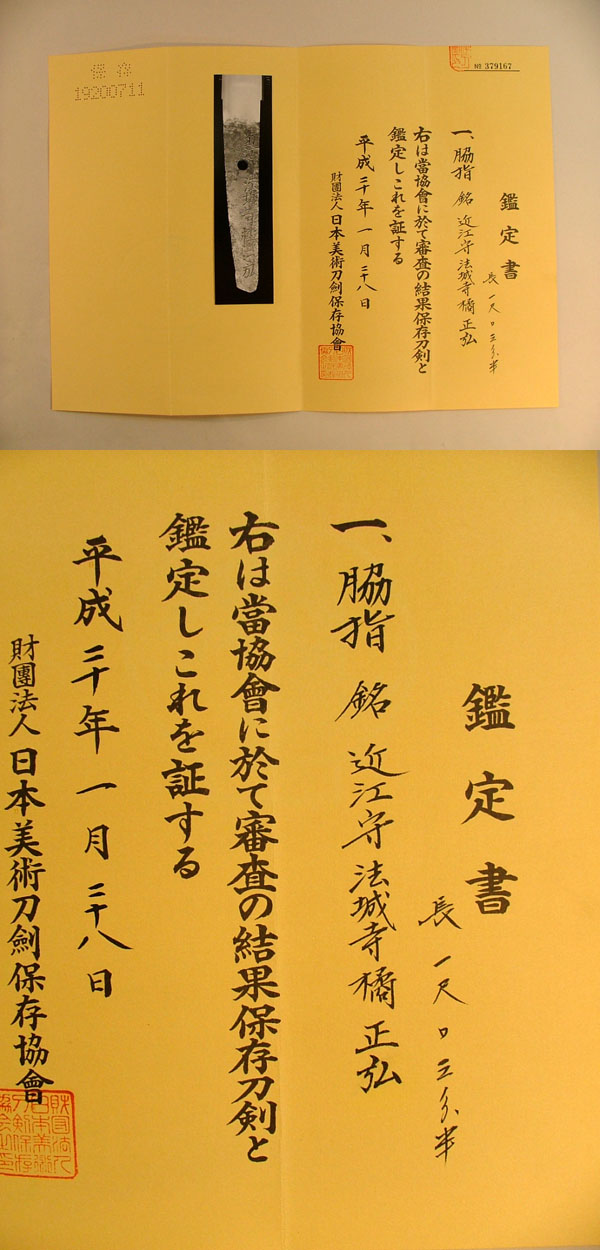 保存
19200711
№ 379167
鑑定書
一、脇指 銘 近江守法城寺橘正弘
長 一尺〇三分半
右は當協會に於て審査の結果保存刀剣と
鑑定しこれを証する
平成二十年一月二十八日
財團法人日本美術刀劍保存協會
鑑定書
一、脇指 銘 近江守法城寺橘正弘
長 一尺〇三分半
右は當協會に於て審査の結果保存刀剣と
鑑定しこれを証する
平成二十年一月二十八日
財團法人日本美術刀劍保存協會